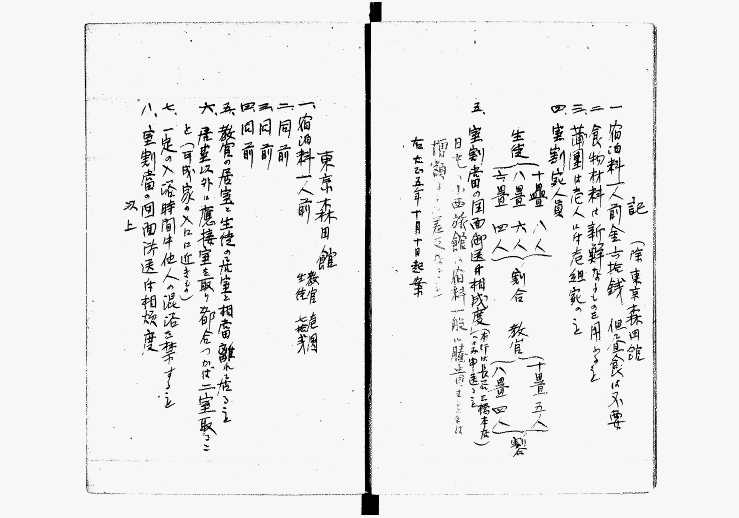 記 (除東京森田館
一 宿泊料一人前金六拾銭 但シ昼食は不要
二 食物材料は新鮮なるものを用ふること
三 蒲団は壱人に付壱組宛のこと
四 室割宛人員
生徒 十畳 八人 八畳 六人 六畳 四人 割合 教官 十畳 五人 八畳 四人 割合
五、室割当の図面御送付相成度
右大正五年十月十日起案
東京森田館
教官 壱円
生徒
一、宿泊料一人前
二、同前
三、同前
四、同前
五、教官の居室と生徒の居室と相当離れ居ること
六、居室以外に応接室を取り都合つかば二室取ること(可成家の入口に近きこと)
七、一定の入浴時間中他人の混浴を禁ずること
八、室割当の図面御送付相煩度
以上